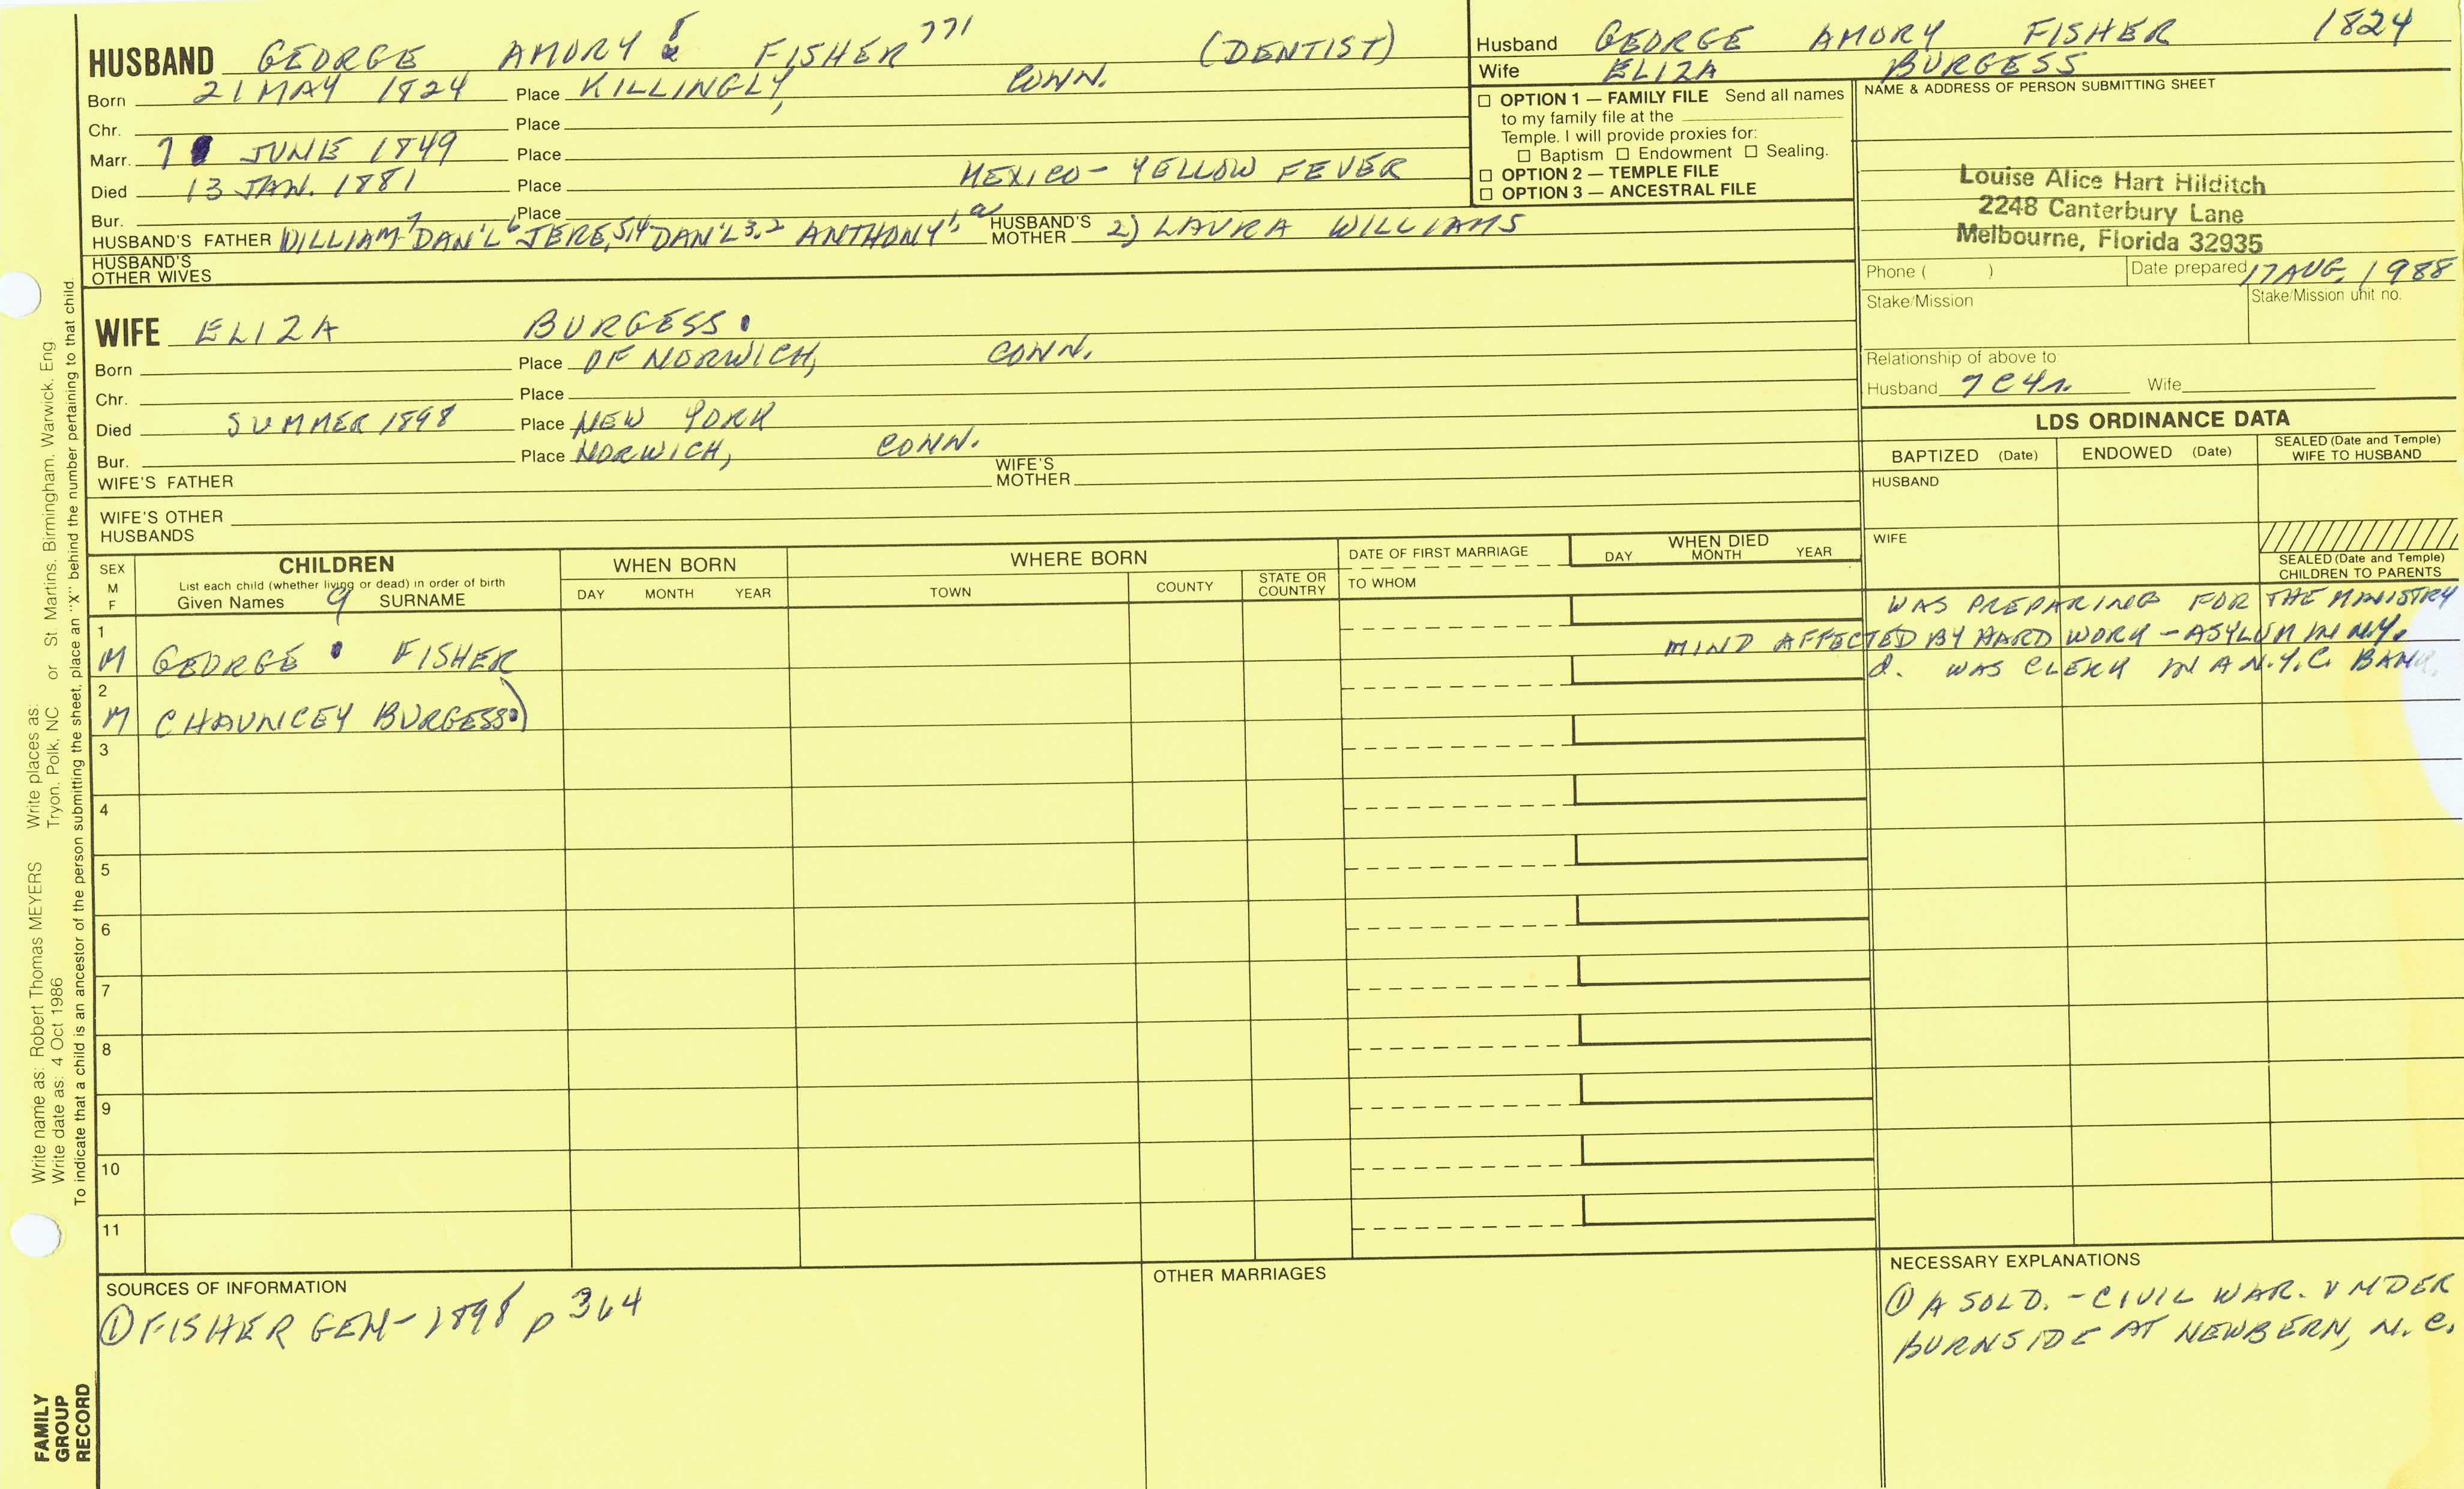 HUSBAND GEORGE AMORY 8 FISHER 771 (DENTIST)
Born 21 MAY 1824 Place KILLINGLY, CONN.
Chr. Place
Marr. 7 JUNE 1849 Place
Died 13 JAN. 1881 Place MEXICO - YELLOW FEVER
Bur. Place
HUSBAND'S FATHER WILLIAM 7 DAN'L 6 JERE, 5,4 DAN'L 3,2 ANTHONY 1, a HUSBAND'S MOTHER 2) LAURA WILLIAMS
HUSBAND'S OTHER WIVES
WIFE ELIZA BURGESS.
Born Place OF NORWICH, CONN.
Chr. Place
Died SUMMER 1898 Place NEW YORK
Bur. Place NORWICH, CONN.
WIFE'S FATHER WIFE'S MOTHER
WIFE'S OTHER HUSBANDS
Husband GEORGE AMORY FISHER 1824
Wife ELIZA BURGESS
☐ OPTION 1 — FAMILY FILE Send all names
to my family file at the
Temple. I will provide proxies for:
☐ Baptism ☐ Endowment ☐ Sealing.
☐ OPTION 2 — TEMPLE FILE
☐ OPTION 3 — ANCESTRAL FILE
NAME & ADDRESS OF PERSON SUBMITTING SHEET
Louise Alice Hart Hilditch
2248 Canterbury Lane
Melbourne, Florida 32935
Phone ( ) Date prepared 17 AUG, 1988
Stake/Mission Stake/Mission unit no.
Relationship of above to
Husband 7C4r. Wife
LDS ORDINANCE DATA
BAPTIZED (Date) ENDOWED (Date) SEALED (Date and Temple) WIFE TO HUSBAND
HUSBAND
WIFE
SEALED (Date and Temple) CHILDREN TO PARENTS
SEX M F
CHILDREN
List each child (whether living or dead) in order of birth
Given Names 9 SURNAME
WHEN BORN
DAY MONTH YEAR
WHERE BORN
TOWN COUNTY STATE OR COUNTRY
DATE OF FIRST MARRIAGE
TO WHOM
WHEN DIED
DAY MONTH YEAR
WAS PREPARING FOR THE MINISTRY
MIND AFFECTED BY HARD WORK - ASYLUM IN N.Y.
1 M GEORGE FISHER
d. WAS CLERK IN A N.Y.C. BANK.
2 M CHAUNCEY BURGESS)
3
4
5
6
7
8
9
10
11
SOURCES OF INFORMATION
① FISHER GEN - 1898 p 364
OTHER MARRIAGES
NECESSARY EXPLANATIONS
① A SOLD. - CIVIL WAR. UNDER
BURNSIDE AT NEWBERN, N.C.
Write name as: Robert Thomas MEYERS Write places as: Tryon, Polk, NC or St. Martins, Birmingham, Warwick, Eng
Write date as: 4 Oct 1986
To indicate that a child is an ancestor of the person submitting the sheet, place an "X" behind the number pertaining to that child.
FAMILY
GROUP
RECORD